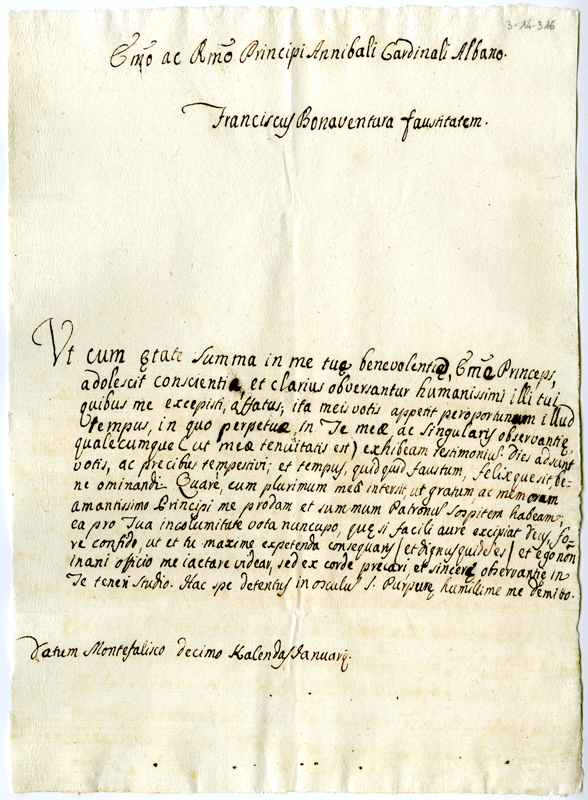 3-14-316
Em̃o ac Rm̃o Principi Annibali Cardinali Albano.
Franciscus Bonaventura faustitatem.
Vt cum ętate summa in me tuę benevolentię, Em̃e Princeps,
adolescit conscientia, et clarius obversantur humanissimi illi tui,
quibus me excepisti, affatus; ita meis votis appetit peroportunum illud
tempus, in quo perpetuæ in Te meæ ac singularis observantię
qualecumque (ut meæ tenuitatis est) exhibeam testimonium. Dies adsunt
votis, ac precibus tempestivi; et tempus, quidquid faustum, felixque sit be-
ne ominandi. Quare, cum plurimum meâ intersit ut gratum, ac memorem
amantissimo Principi me prodam et summum Patronum sospitem habeam,
ea pro Tua incolumitate vota nuncupo, quę si facili aure excipiat Deus, fo-
re confido, ut et tu maxime expetenda consequaris (et dignus quidem es) et ego non
inani officio me iactare videar, sed ex corde precari et sincerę observantię in
Te teneri studio. Hac spe detentus in osculũ S. Purpurę humilime me demitto.
Datum Montefalisco decimo Kalendas Januarij.